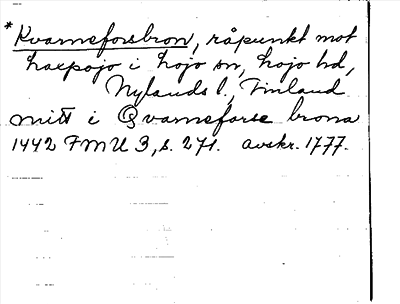 *Kvarneforsbron, råpunkt mot
Karpojo i Kojo sn, Kojo hd,
Nylands l., Finland
mitt i Qvarneforse brona
1442 FMU 3, s. 271. avskr. 1777.